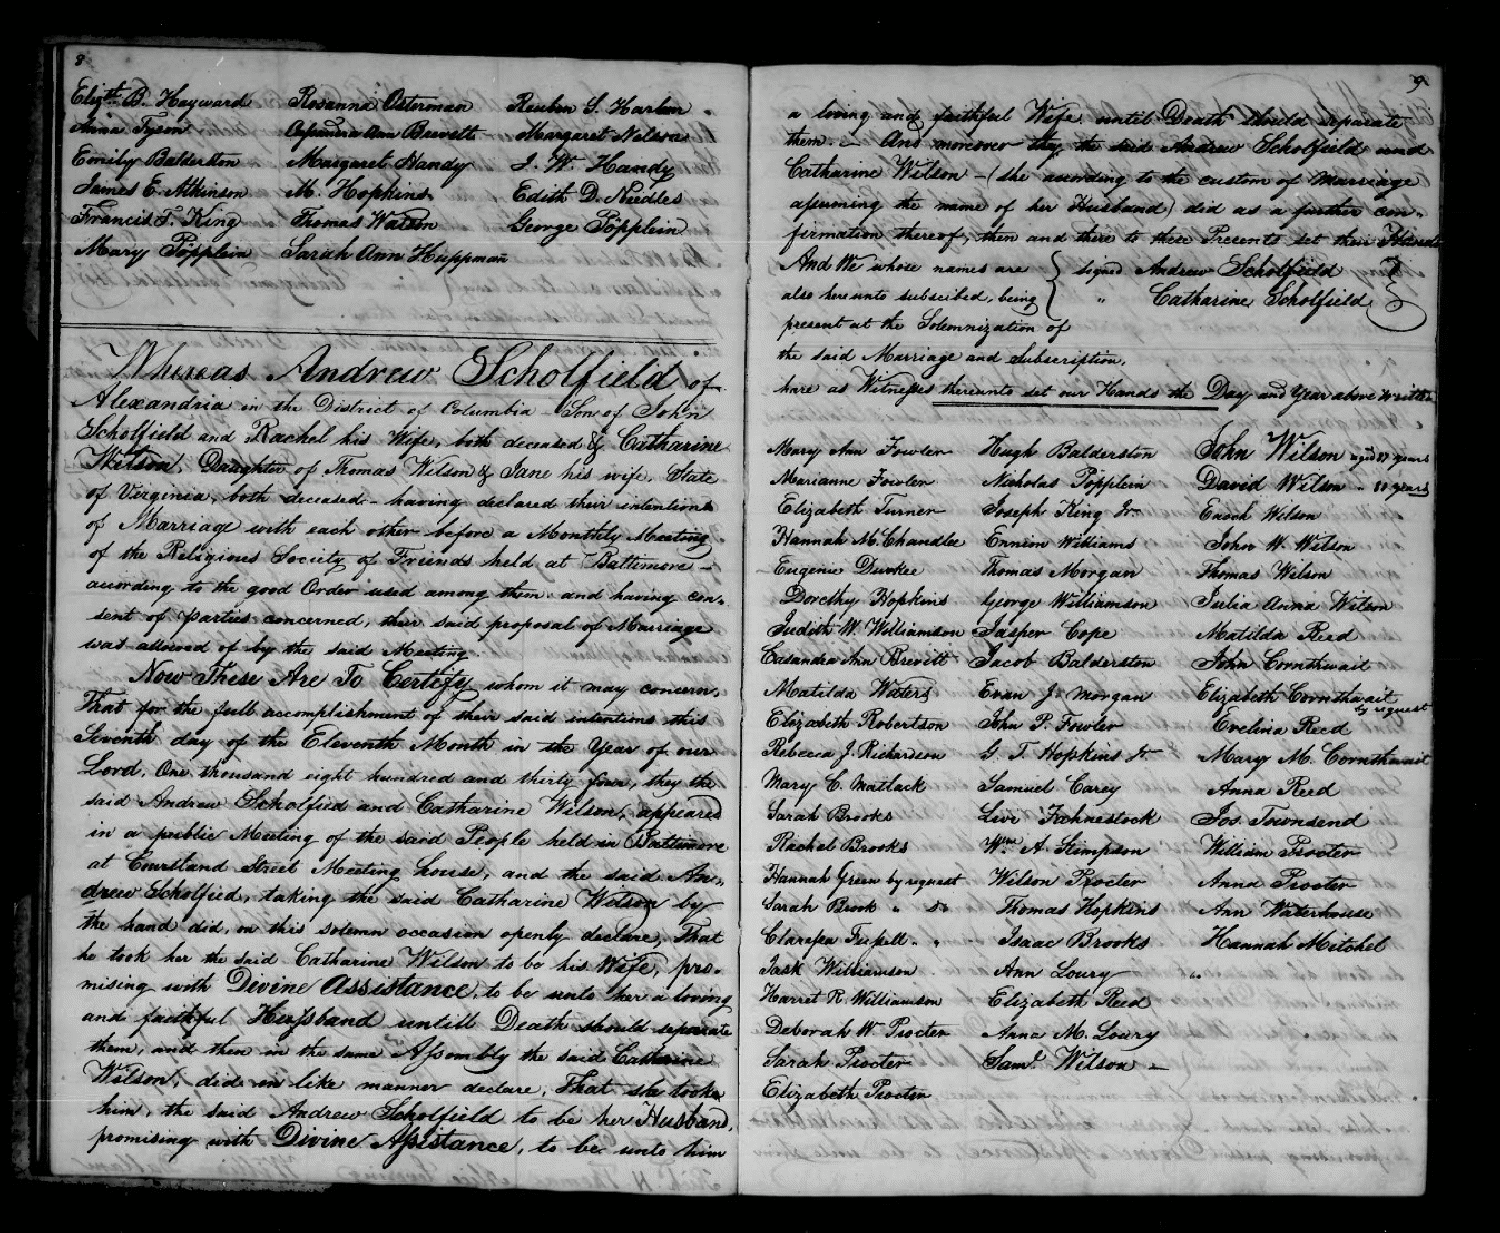 8
Elizth B. Hayward Rosanna Osterman Reuben S. Harlan
Anna Tyson Cassandra Ann Brevitt Margaret Nelson
Emily Balderston Margaret Handy J. W. Handy
James E. Atkinson M. Hopkins Edith D. Needles
Francis T. King Thomas Watson George Pöpplein
Mary Pöpplein Sarah Ann Huppman
Whereas Andrew Scholfield of
Alexandria in the District of Columbia Son of John
Scholfield and Rachel his Wife, both deceased & Catharine
Wilson Daughter of Thomas Wilson & Jane his wife, State
of Verginia, both deceased – having declared their intentions
of Marriage with each other before a Monthly Meeting
of the Religious Society of Friends held at Baltimore –
according to the good Order used among them and having con-
sent of parties concerned, their said proposal of Marriage
was allowed of by the said Meeting.
Now These Are To Certify whom it may concern,
That for the full accomplishment of their said intentions this
Seventh day of the Eleventh Month in the Year of our
Lord, One thousand eight hundred and thirty four, they the
said Andrew Scholfied and Catharine Wilson, appeared
in a public Meeting of the said People held in Baltimore
at Courtland Street Meeting house, and the said An-
drew Scholfied, taking the said Catharine Wilson by
the hand did, on this solemn occasion openly declare, That
he took her the said Catharine Wilson to be his Wife, pro-
mising with Divine Assistance, to be unto her a loving
and faithful Hussband untill Death should seperate
them, and then in the same Assembly the said Catharine
Wilson, did in like manner declare, That she took
him, the said Andrew Scholfield to be her Husband,
promising with Divine Assistance, to be unto him
9
a loving and faithful Wife until Death should seperate
them. – And moreover they the said Andrew Scholfield and
Catharine Wilson – (she according to the custom of marriage
assuming the name of her Husband) did as a further con-
firmation thereof, then and there to these Presents set their Hands
And We whose names are signed Andrew Scholfield
also hereunto subscibed, being " Catharine Scholfield
present at the Solemnization of
the said Marriage and Subscription,
have as Witnesses thereunto set our Hands the Day and Year above written
Mary Ann Fowler Hugh Balderston John Wilson aged 87 years
Marianne Fowler Nicholas Pöpplein David Wilson
Elizabeth Turner Joseph King Jr Enoch Wilson
Hannah M. Chandlee Ennion Williams John W. Wilson
Eugenie Durkee Thomas Morgan Thomas Wilson
Dorothy Hopkins George Williamson Julia Anna Wilson
Judith W. Williamson Jasper Cope Matilda Reed
Casandra Ann Brevitt Jacob Balderston John Cornthwait
Matilda Waters Evan J. Morgan Elizabeth Cornthwait
by request
Elizabeth Robertson John P. Fowler Evelina Reed
Rebecca J. Richardson G. T. Hopkins Jr Mary M. Cornthwait
Mary C. Matlack Samuel Carey Anna Reed
Sarah Brooks Levi Fahnestock Jos. Townsend
Rachel Brooks Wm A. Stimpson William Procter
Hannah Green by request Wilson Procter Anna Procter
Sarah Brook " do Thomas Hopkins Ann Waterhouse
Clarissa Isaac Brooks Hannah Mitchel
Williamson Ann Loury "
Harret R. Williamson Elizabeth Reed
Deborah W. Procter Anna M. Loury
Sarah Procter Saml Wilson –
Elizabeth Procter